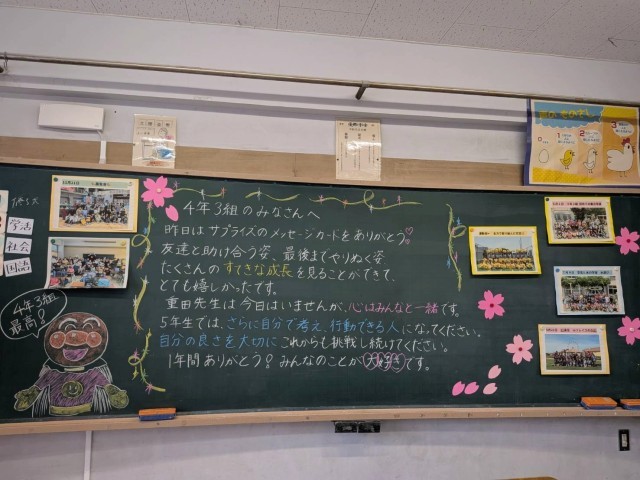 学活
社会
国語
4年3組
最高!
4年3組のみなさんへ
昨日はサプライズのメッセージカードをありがとう♡
友達と助け合う姿、最後までやりぬく姿
たくさんのすてきな成長を見ることができて、
とても嬉しかったです。
重田先生は今日はいませんが、心はみんなと一緒です。
5年生では、さらに自分で考え、行動できる人になってください。
自分の良さを大切にこれからも挑戦し続けてください。
1年間ありがとう!みんなのことが大好きです。
1
2
3